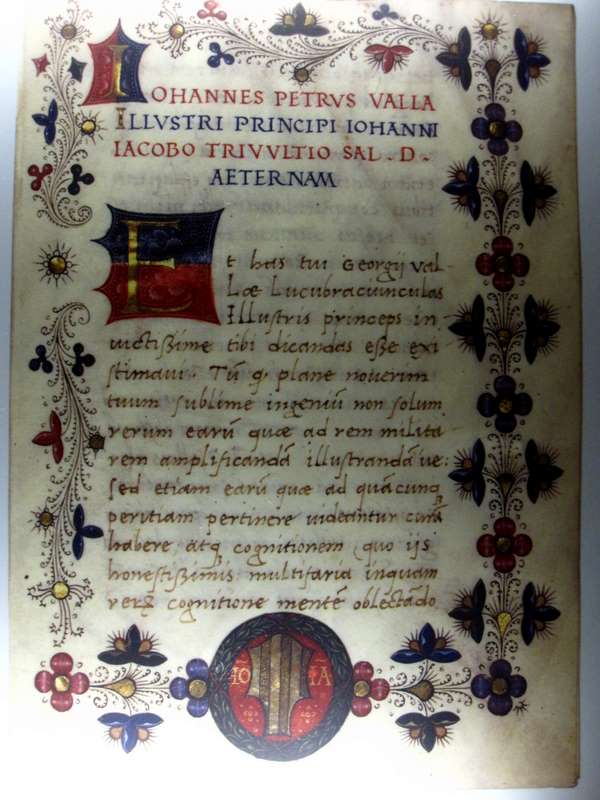 IOHANNES PETRVS VALLA
ILLVSTRI PRINCIPI IOHANNI
IACOBO TRIVVLTIO SAL. D.
AETERNAM
Et has tui Georgij Val-
Læ Lucubraciunculas
Illustris princeps in
uictißime tibi dicandas eße exi
stimaui. Tū q plane nouerim
tuum sublime ingeniū non solum
rerum earū quæ ad rem milita
rem amplificandā illustrandā ue:
sed etiam earū quæ ad quācunq
peritiam pertinere uideantur curā
habere, atq cognitionem, quo ijs
honestißimis multifaria inquam
rerꝝ cognitione mentē oblectādo
IO IA